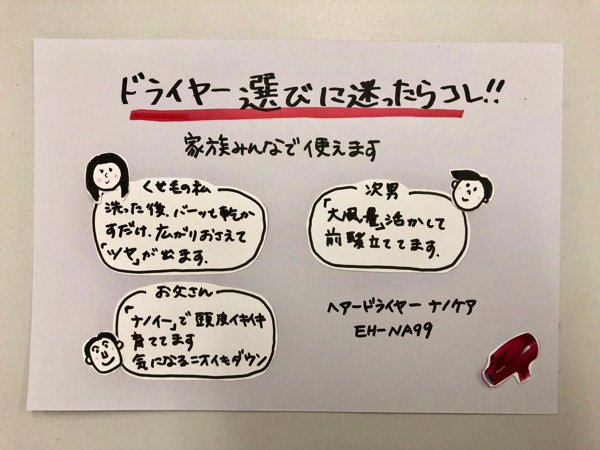 ドライヤー選びに迷ったらコレ!!
家族みんなで使えます
くせ毛の私
洗った後、バーッと乾か
すだけ、広がりおさえて
「ツヤ」が出ます。
次男
「大風量」活かして
前髪立ててます。
お父さん
「ナノイー」で頭皮イキイキ
育ててます
気になるニオイもダウン
ヘアードライヤー ナノケア
EH-NA99